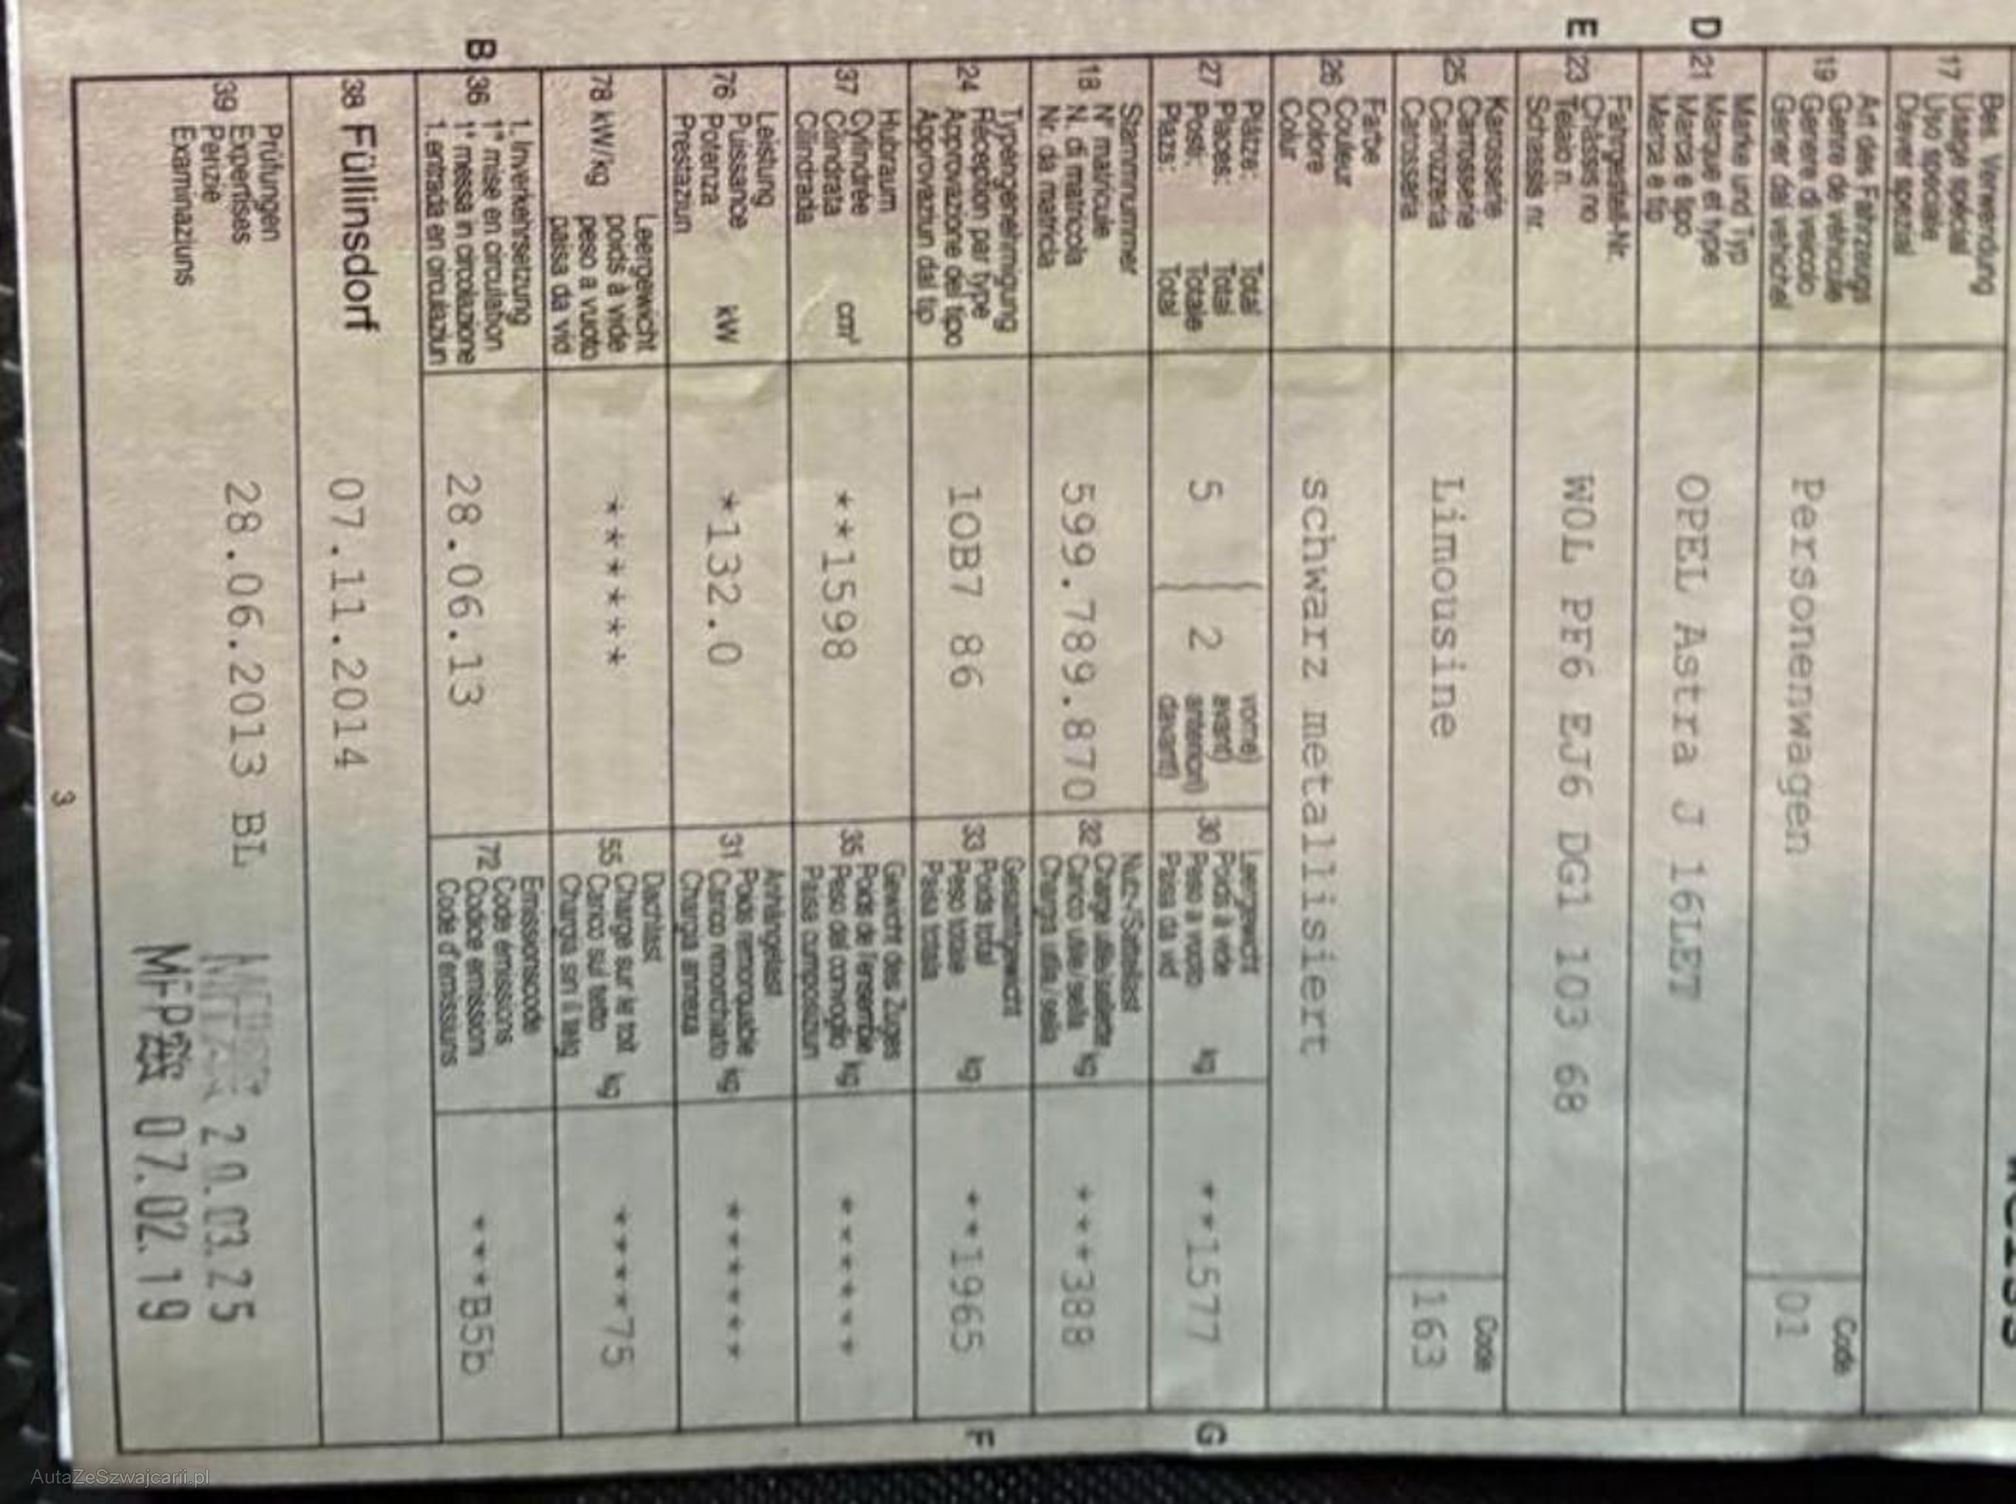 Bes. Verwendung
17 Usage spécial
Uso speciale
Diever spezial
Art des Fahrzeugs
19 Genre de véhicule
Genere di veicolo
Gener dal vehichel
Personenwagen
Code
01
D 21 Marke und Typ
Marque et type
Marca e tipo
Marca e tip
OPEL Astra J 16LET
E 23 Fahrgestell-Nr.
Châssis no
Telaio n.
Schassis nr.
W0L PF6 EJ6 DG1 103 68
Karosserie
25 Carrosserie
Carrozzeria
Carossaria
Limousine
Code
163
Farbe
26 Couleur
Colore
Colur
schwarz metallisiert
27 Plätze: Total
Places: Total
Posti: Totale
Plazs: Total
5 ( 2 vorne)
avant)
anteriori)
davant)
30 Leergewicht
Poids à vide
Peso a vuoto kg
Paisa da vid
**1577 G
Stammnummer
18 N° matricule
N. di matricola
Nr. da matricla
599.789.870
32 Nutz-/Sattellast
Charge utile/sellette
Carico utile/sella kg
Chargia utila/sella
***388
Typengenehmigung
24 Réception par type
Approvazione del tipo
Approvaziun dal tip
1OB7 86
33 Gesamtgewicht
Poids total
Peso totale kg
Paisa totala
**1965 F
Hubraum
37 Cylindrée
Cilindrata cm³
Cilindrada
**1598
35 Gewicht des Zuges
Poids de l'ensemble
Peso del convoglio kg
Paisa cumposiziun
******
Leistung
76 Puissance
Potenza kW
Prestaziun
*132.0
31 Anhängelast
Poids remorquable
Carico rimorchiato kg
Chargia annexa
******
78 kW/kg Leergewicht
poids à vide
peso a vuoto
paisa da vid
******
55 Dachlast
Charge sur le toit
Carico sul tetto kg
Chargia sin il tetg
****75
B 36 1. Inverkehrsetzung
1re mise en circulation
1a messa in circolazione
1. entrada en circulaziun
28.06.13
72 Emissionscode
Code émissions
Codice emissioni
Code d'emissiuns
***B5b
38 Füllinsdorf
07.11.2014
39 Prüfungen
Expertises
Perizie
Examinaziuns
28.06.2013 BL
20.03.25
MFP 07.02.19
3
AutaZeSzwajcarii.pl